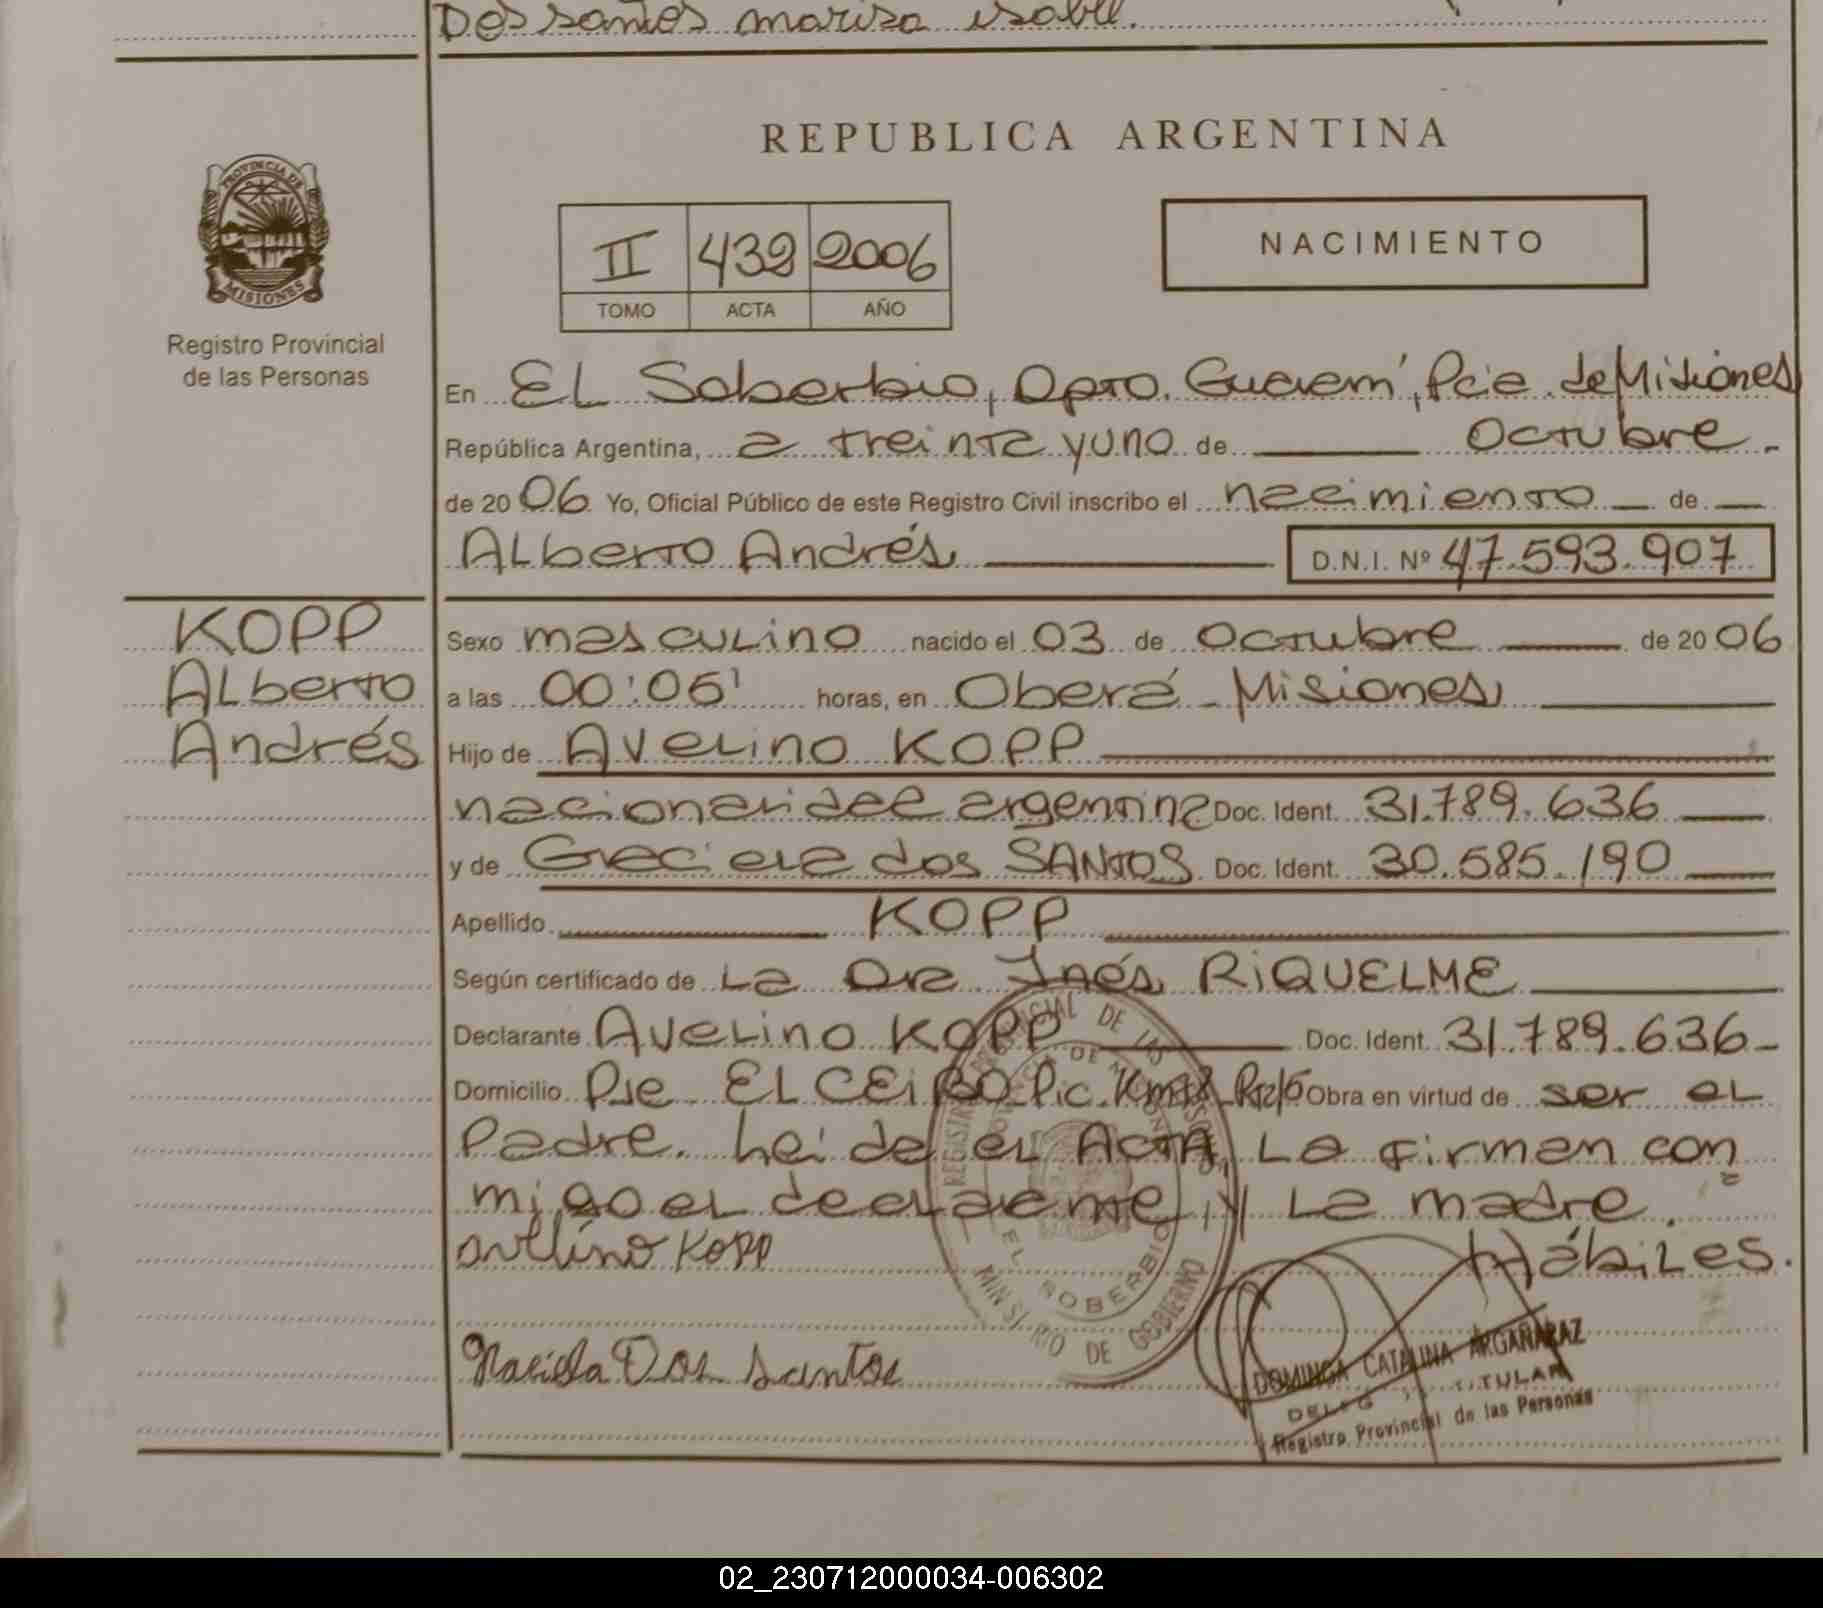 Dos santos marisa isabel.
REPUBLICA ARGENTINA
PROVINCIA DE
MISIONES
Registro Provincial
de las Personas
II 432 2006
TOMO ACTA AÑO
NACIMIENTO
En EL Soberbio, Dpto. Guaraní, Pcia. de Misiones
República Argentina, a treinta y uno de Octubre.
de 2006 Yo, Oficial Público de este Registro Civil inscribo el nacimiento de
ALberto Andrés D.N.I. Nº 47.593.907
KOPP
ALberto
Andrés
Sexo masculino nacido el 03 de Octubre de 2006
a las 00:05' horas, en Oberá - Misiones
Hijo de Avelino KOPP
nacionalidad argentina Doc. Ident. 31.789.636
y de Graciela dos SANTOS Doc. Ident. 30.585.190
Apellido KOPP
Según certificado de La Dra. Inés RIQUELME
Declarante Avelino KOPP Doc. Ident. 31.789.636-
Domicilio Pje EL CEIBO Pic. Obra en virtud de ser el
Padre. Leída el ACTA, La firman con
migo el declarante, y La madre.
Hábiles.
avelino KOPP
Graciela Dos santos
REGISTRO PROVINCIAL DE LAS PERSONAS
PROVINCIA DE MISIONES
EL SOBERBIO
MINISTERIO DE GOBIERNO
DOMINGA CATALINA ARGAÑARAZ
TITULAR
Registro Provincial de las Personas
02_230712000034-006302